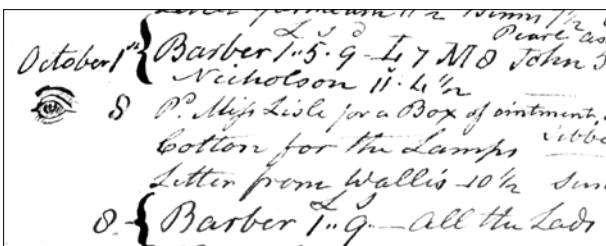 Letter from 11½
L S d Pearl
October 1st { Barber 1..5.9 - L 7 M 8 John
Nicholson 11.4½
8 Pd. Miss Lisle for a Box of ointment,
Cotton for the Lamps
Letter from Wallis 10½
L S
8 { Barber 1..9 - all the Lads